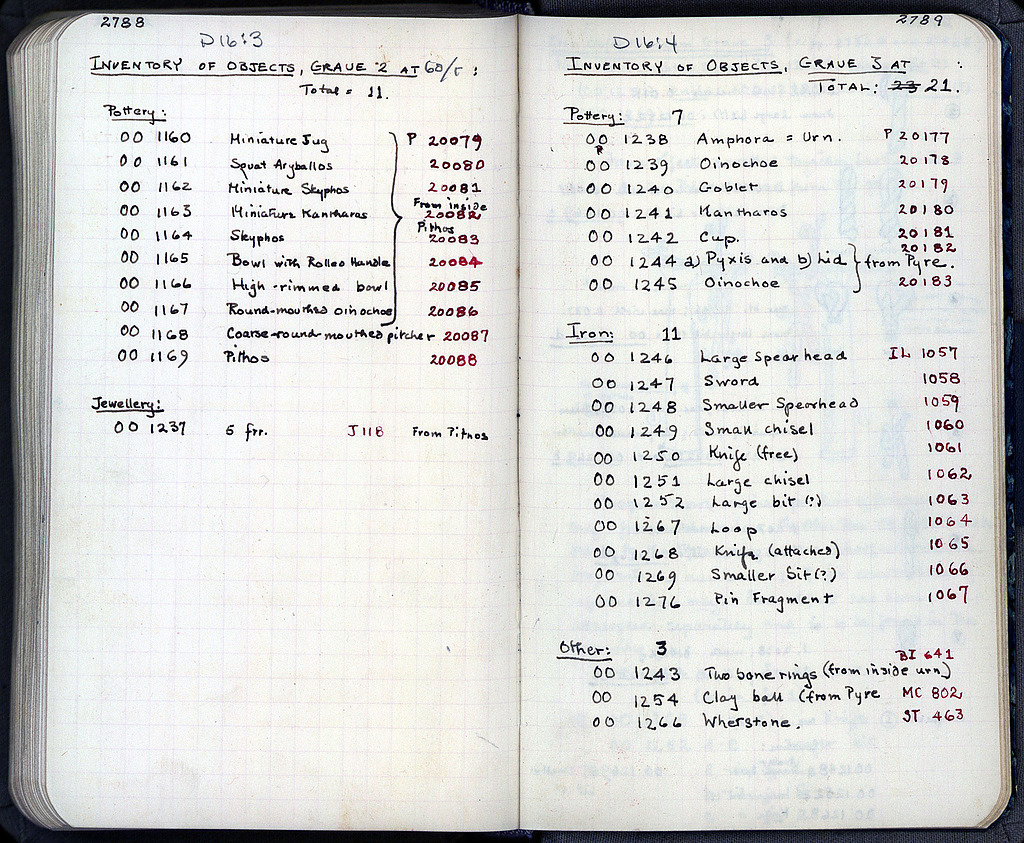 2788
D16:3
INVENTORY OF OBJECTS, GRAVE 2 AT 60/Γ :
Total = 11.
Pottery:
OO 1160 Miniature Jug P 20079
OO 1161 Squat Aryballos 20080
OO 1162 Miniature Skyphos 20081
From inside
OO 1163 Miniature Kantharos 20082
Pithos
OO 1164 Skyphos 20083
OO 1165 Bowl with Rolled Handle 20084
OO 1166 High-rimmed bowl 20085
OO 1167 Round-mouthed oinochoe 20086
OO 1168 Coarse-round-mouthed pitcher 20087
OO 1169 Pithos 20088
Jewellery:
OO 1237 6 frr. J 118 From Pithos
2789
D16:4
INVENTORY OF OBJECTS, GRAVE 3 AT :
TOTAL: 23 21.
Pottery: 7
OO 1238 Amphora = Urn. P 20177
OO 1239 Oinochoe 20178
OO 1240 Goblet 20179
OO 1241 Kantharos 20180
OO 1242 Cup. 20181
20182
OO 1244 a) Pyxis and b) Lid from Pyre.
OO 1245 Oinochoe 20183
Iron: 11
OO 1246 Large Spearhead IL 1057
OO 1247 Sword 1058
OO 1248 Smaller Spearhead 1059
OO 1249 Small chisel 1060
OO 1250 Knife (free) 1061
OO 1251 Large chisel 1062
OO 1252 Large bit (?) 1063
OO 1267 Loop 1064
OO 1268 Knife (attached) 1065
OO 1269 Smaller bit (?) 1066
OO 1276 Pin Fragment 1067
Other: 3
BI 641
OO 1243 Two bone rings (from inside urn)
OO 1254 Clay ball (from Pyre MC 802
OO 1266 Whetstone. ST 463